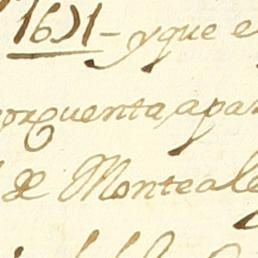 1691 - y que e
por quenta, apar
de Monteale